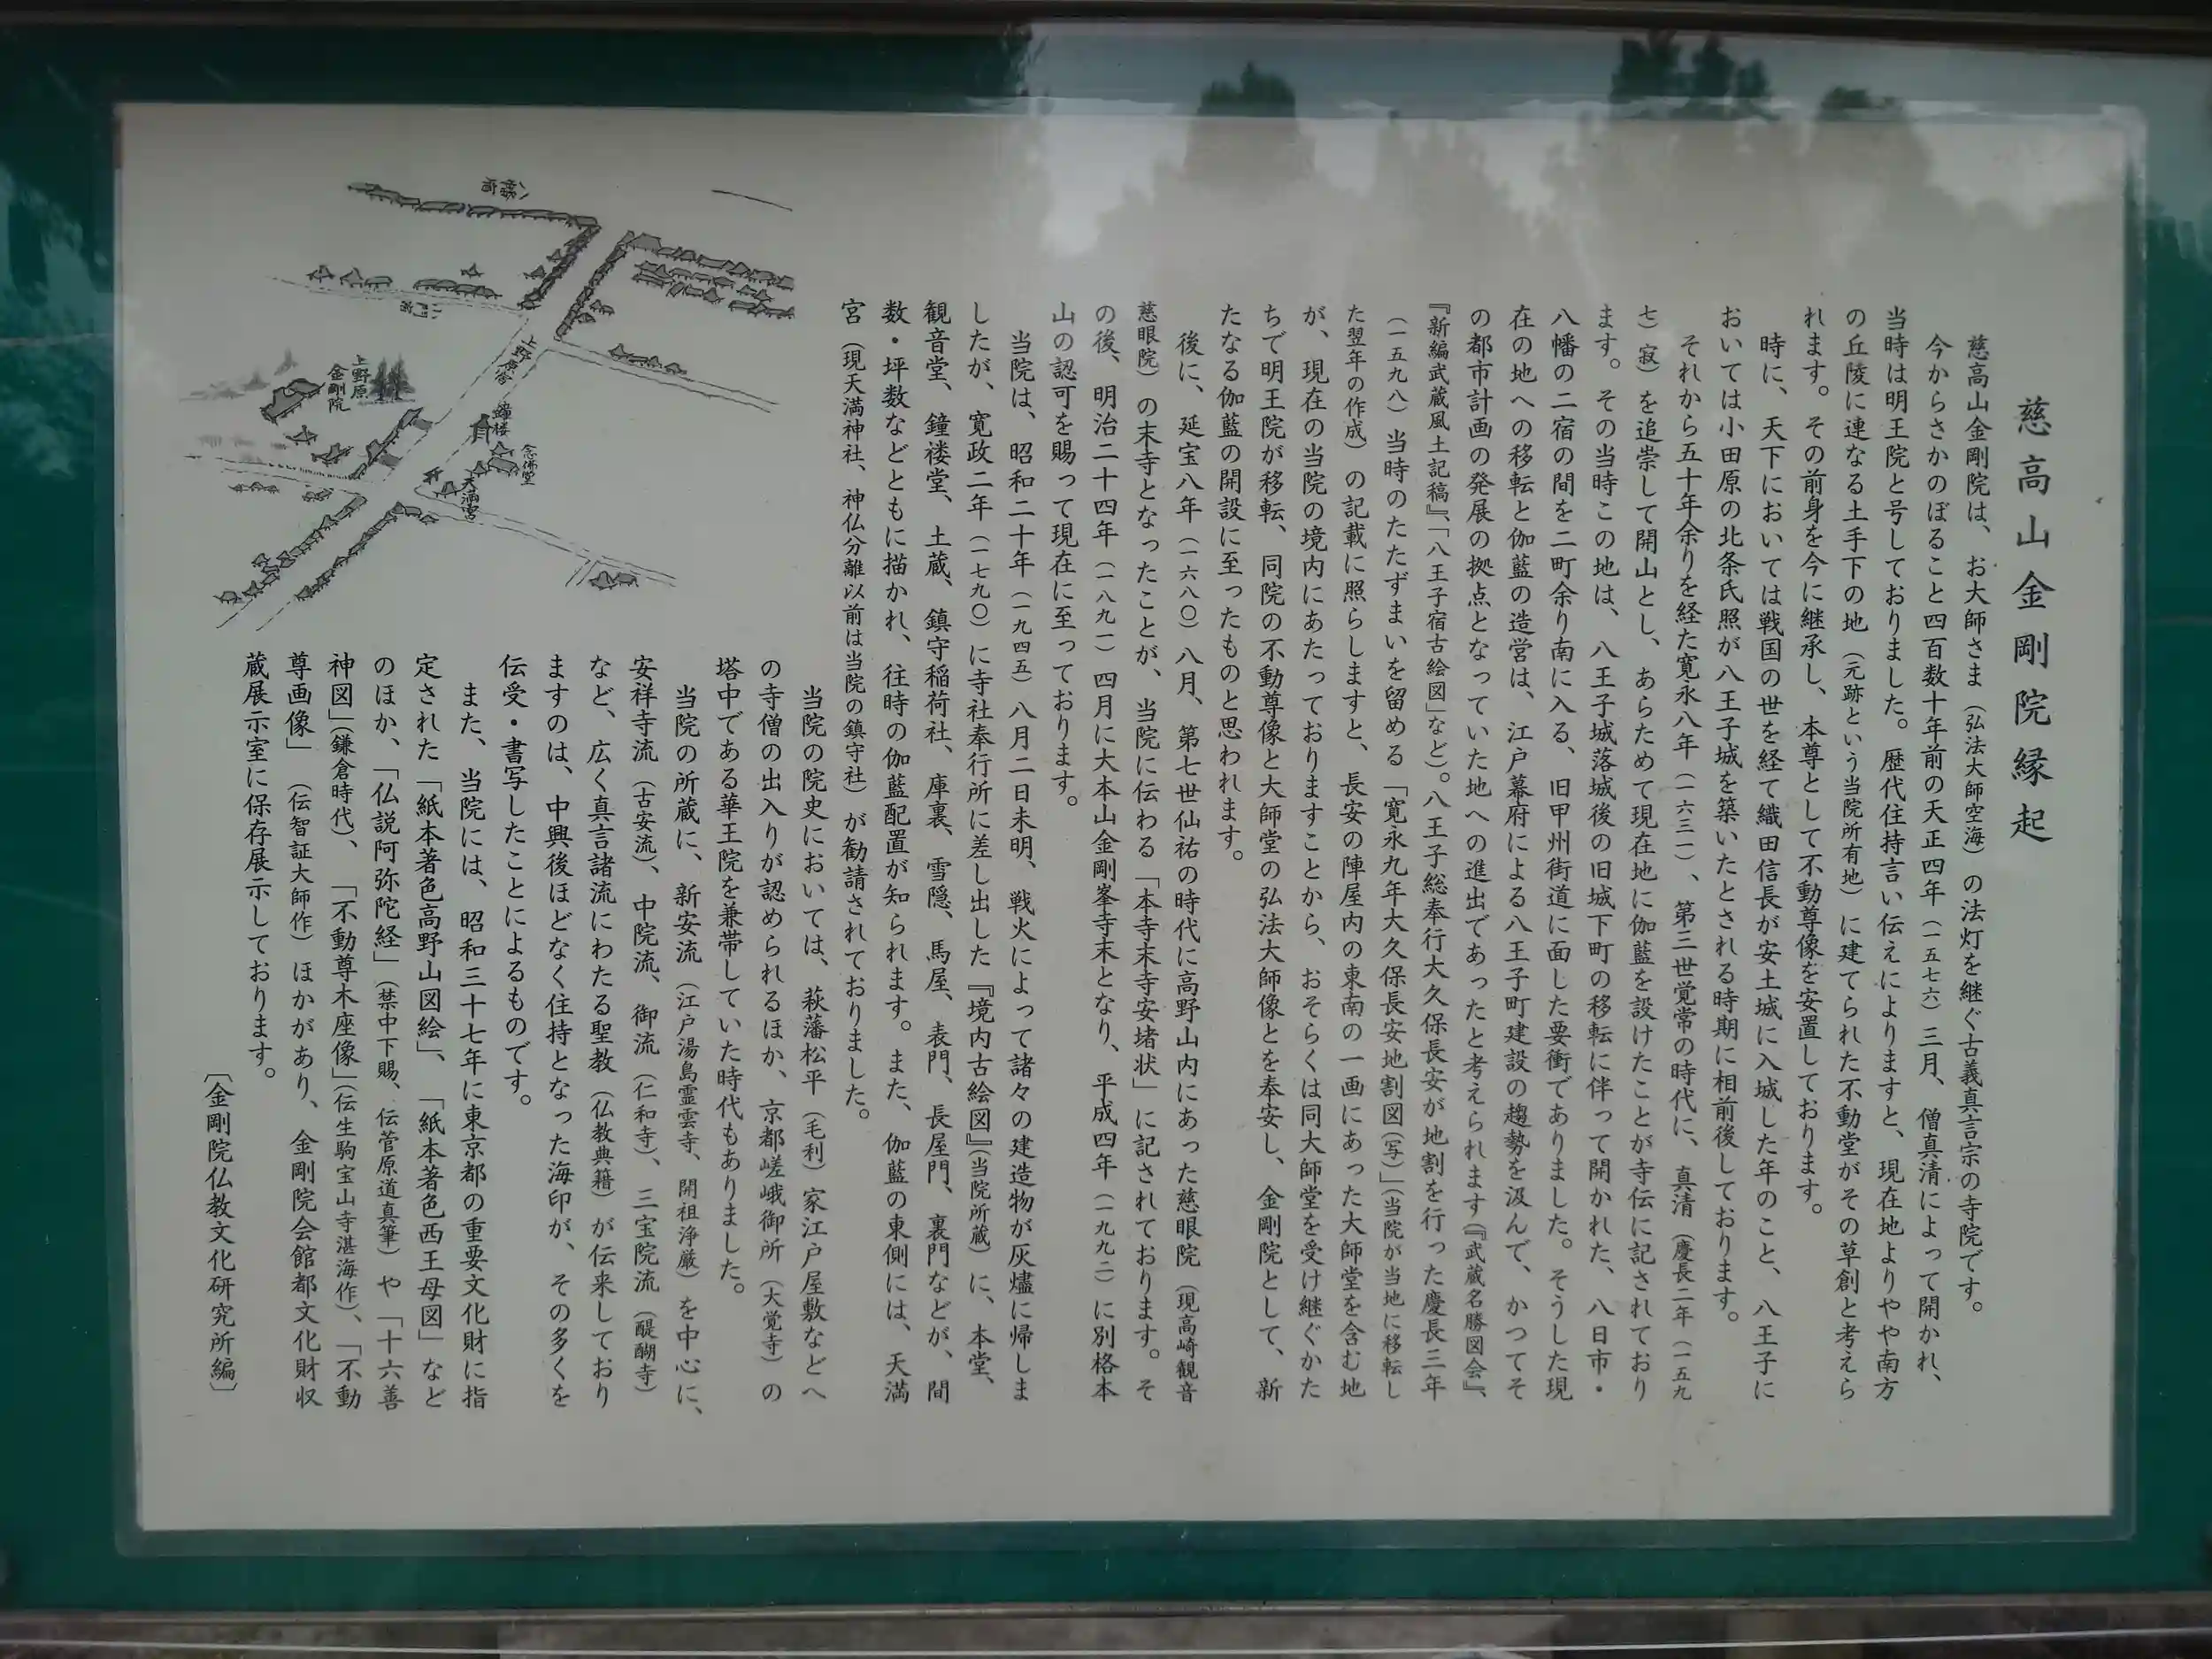 慈高山金剛院縁起
慈高山金剛院は、お大師さま（弘法大師空海）の法灯を継ぐ古義真言宗の寺院です。
今からさかのぼること四百数十年前の天正四年（一五七六）三月、僧真清によって開かれ、
当時は明王院と号しておりました。歴代住持言い伝えによりますと、現在地よりやや南方
の丘陵に連なる土手下の地（元跡という当院所有地）に建てられた不動堂がその草創と考えら
れます。その前身を今に継承し、本尊として不動尊像を安置しております。
時に、天下においては戦国の世を経て織田信長が安土城に入城した年のこと、八王子に
おいては小田原の北条氏照が八王子城を築いたとされる時期に相前後しております。
それから五十年余りを経た寛永八年（一六三一）、第三世覚常の時代に、真清（慶長二年（一五九
七）寂）を追崇して開山とし、あらためて現在地に伽藍を設けたことが寺伝に記されており
ます。その当時この地は、八王子城落城後の旧城下町の移転に伴って開かれた、八日市・
八幡の二宿の間を二町余り南に入る、旧甲州街道に面した要衝でありました。そうした現
在の地への移転と伽藍の造営は、江戸幕府による八王子町建設の趨勢を汲んで、かつてそ
の都市計画の発展の拠点となっていた地への進出であったと考えられます（『武蔵名勝図会』、
『新編武蔵風土記稿』、「八王子宿古絵図」など）。八王子総奉行大久保長安が地割を行った慶長三年
（一五九八）当時のたたずまいを留める「寛永九年大久保長安地割図（写）」（当院が当地に移転し
た翌年の作成）の記載に照らしますと、長安の陣屋内の東南の一画にあった大師堂を含む地
が、現在の当院の境内にあたっておりますことから、おそらくは同大師堂を受け継ぐかた
ちで明王院が移転、同院の不動尊像と大師堂の弘法大師像とを奉安し、金剛院として、新
たなる伽藍の開設に至ったものと思われます。
後に、延宝八年（一六八〇）八月、第七世仙祐の時代に高野山内にあった慈眼院（現高崎観音
慈眼院）の末寺となったことが、当院に伝わる「本寺末寺安堵状」に記されております。そ
の後、明治二十四年（一八九一）四月に大本山金剛峯寺末となり、平成四年（一九九二）に別格本
山の認可を賜って現在に至っております。
当院は、昭和二十年（一九四五）八月二日未明、戦火によって諸々の建造物が灰燼に帰しま
したが、寛政二年（一七九〇）に寺社奉行所に差し出した『境内古絵図』（当院所蔵）に、本堂、
観音堂、鐘楼堂、土蔵、鎮守稲荷社、庫裏、雪隠、馬屋、表門、長屋門、裏門などが、間
数・坪数などとともに描かれ、往時の伽藍配置が知られます。また、伽藍の東側には、天満
宮（現天満神社、神仏分離以前は当院の鎮守社）が勧請されておりました。
当院の院史においては、萩藩松平（毛利）家江戸屋敷などへ
の寺僧の出入りが認められるほか、京都嵯峨御所（大覚寺）の
塔中である華王院を兼帯していた時代もありました。
当院の所蔵に、新安流（江戸湯島霊雲寺、開祖浄厳）を中心に、
安祥寺流（古安流）、中院流、御流（仁和寺）、三宝院流（醍醐寺）
など、広く真言諸流にわたる聖教（仏教典籍）が伝来しており
ますのは、中興後ほどなく住持となった海印が、その多くを
伝受・書写したことによるものです。
また、当院には、昭和三十七年に東京都の重要文化財に指
定された「紙本著色高野山図絵」、「紙本著色西王母図」など
のほか、「仏説阿弥陀経」（禁中下賜、伝菅原道真筆）や「十六善
神図」（鎌倉時代）、「不動尊木座像」（伝生駒宝山寺湛海作）、「不動
尊画像」（伝智証大師作）ほかがあり、金剛院会館都文化財収
蔵展示室に保存展示しております。
〔金剛院仏教文化研究所編〕
八幡宿
上野原宿
上野原
金剛院
鐘楼
念佛堂
天満宮